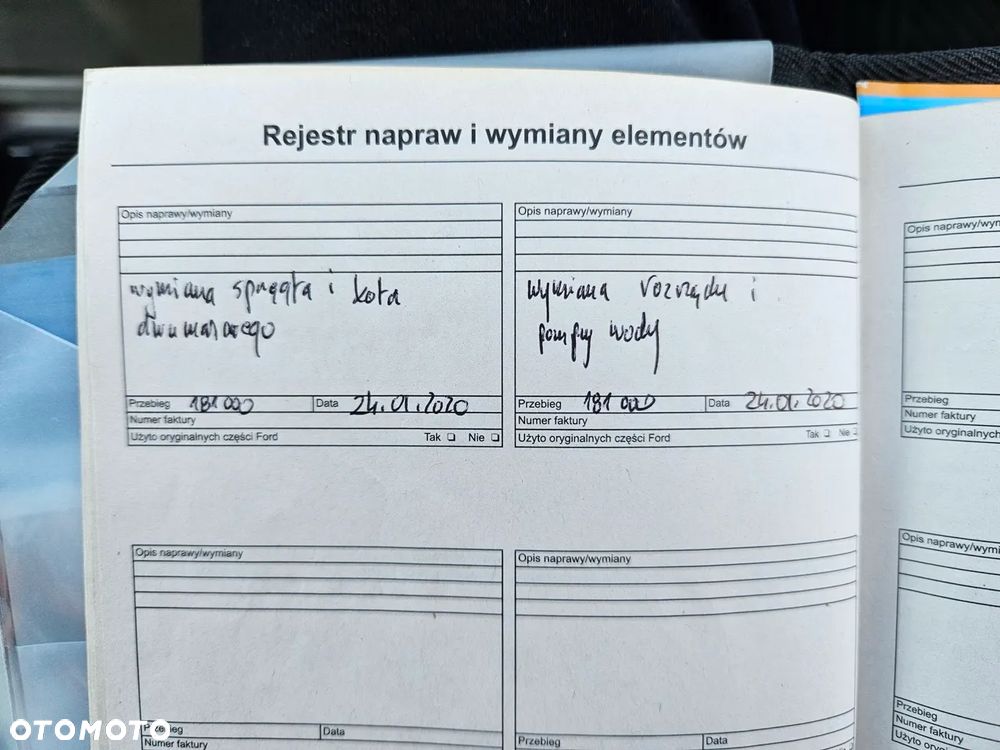 Rejestr napraw i wymiany elementów
Opis naprawy/wymiany
wymiana sprzęgła i koła
dwumasowego
Przebieg 181 000 Data 24.01.2020
Numer faktury
Użyto oryginalnych części Ford Tak Nie
Opis naprawy/wymiany
wymiana rozrządu i
pompy wody
Przebieg 181 000 Data 24.01.2020
Numer faktury
Użyto oryginalnych części Ford Tak Nie
Opis naprawy/wymiany
Przebieg Data
Numer faktury
Opis naprawy/wymiany
Przebieg Data
Opis naprawy/wym
Przebieg
Numer faktury
Użyto oryginalnych części
Opis naprawy/wymi
Przebieg
Numer faktury
Użyto oryg
OTOMOTO